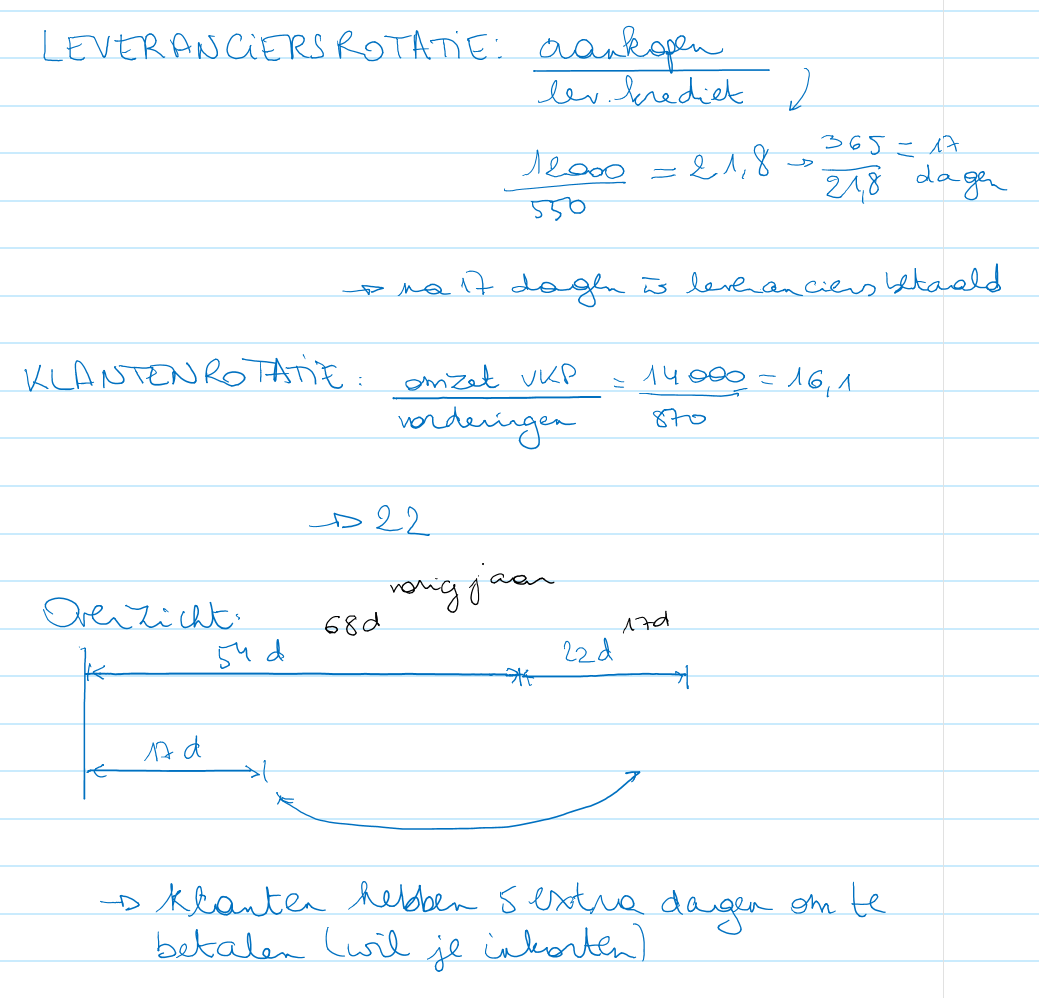 LEVERANCIERSROTATIE: aankopen
lev. krediet
12000 = 21,8 → 365 = 17
550 21,8 dagen
→ na 17 dagen is leveranciers betaald
KLANTENROTATIE: omzet VKP = 14000 = 16,1
vorderingen 870
→ 22
vorig jaar
Overzicht: 68d 17d
54 d 22d
17 d
→ Klanten hebben 5 extra dagen om te
betalen (wil je inkorten)